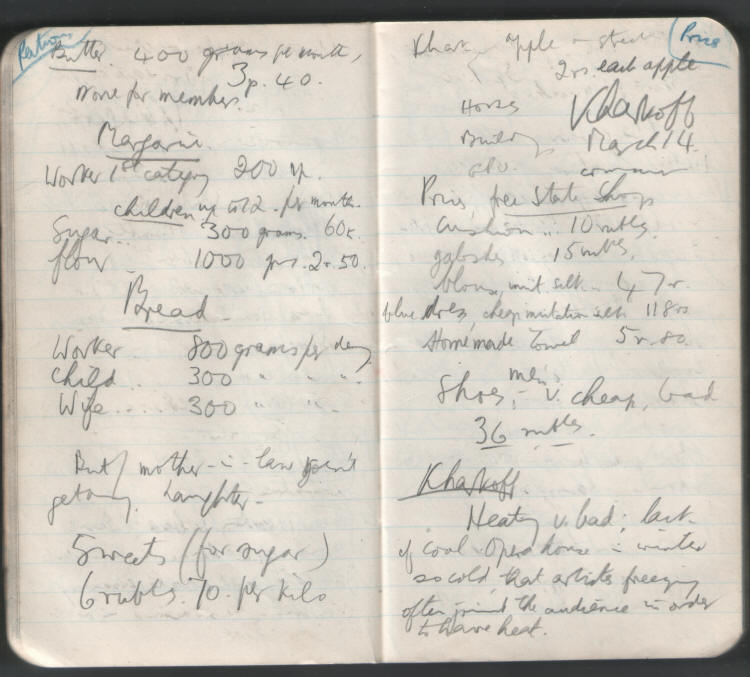 Rations
Butter. 400 grams per month,
3p. 40.
None for members.
Margarine
Worker 1st category 200 gr.
children up to 12. per month.
Sugar.. 300 grams. 60k.
flour 1000 grs. 2r. 50.
Bread
Worker 800 grams per day
Child .. 300 " " ".
Wife .... 300 " " ".
But mother-in-law doesn't
get any. Laughter-
Sweets (for sugar)
6 rubls. 70. per kilo
Prices
apple in street
2rs. each apple
Horses Kharkoff
Building March 14.
GPU.
Prices, free State Shops
Cushion .. 10 rubls.
galoshes 15 rubls.
blouse, imit. silk .. 47r.
blue dress, cheap imitation silk 118rs
Homemade Towel 5r. 80.
Shoes, men's - v. cheap, bad
36 rubles.
Kharkoff.
Heating v. bad; lack
of coal. Opera house in winter
so cold that artists freezing
often joined the audience in order
to have heat.